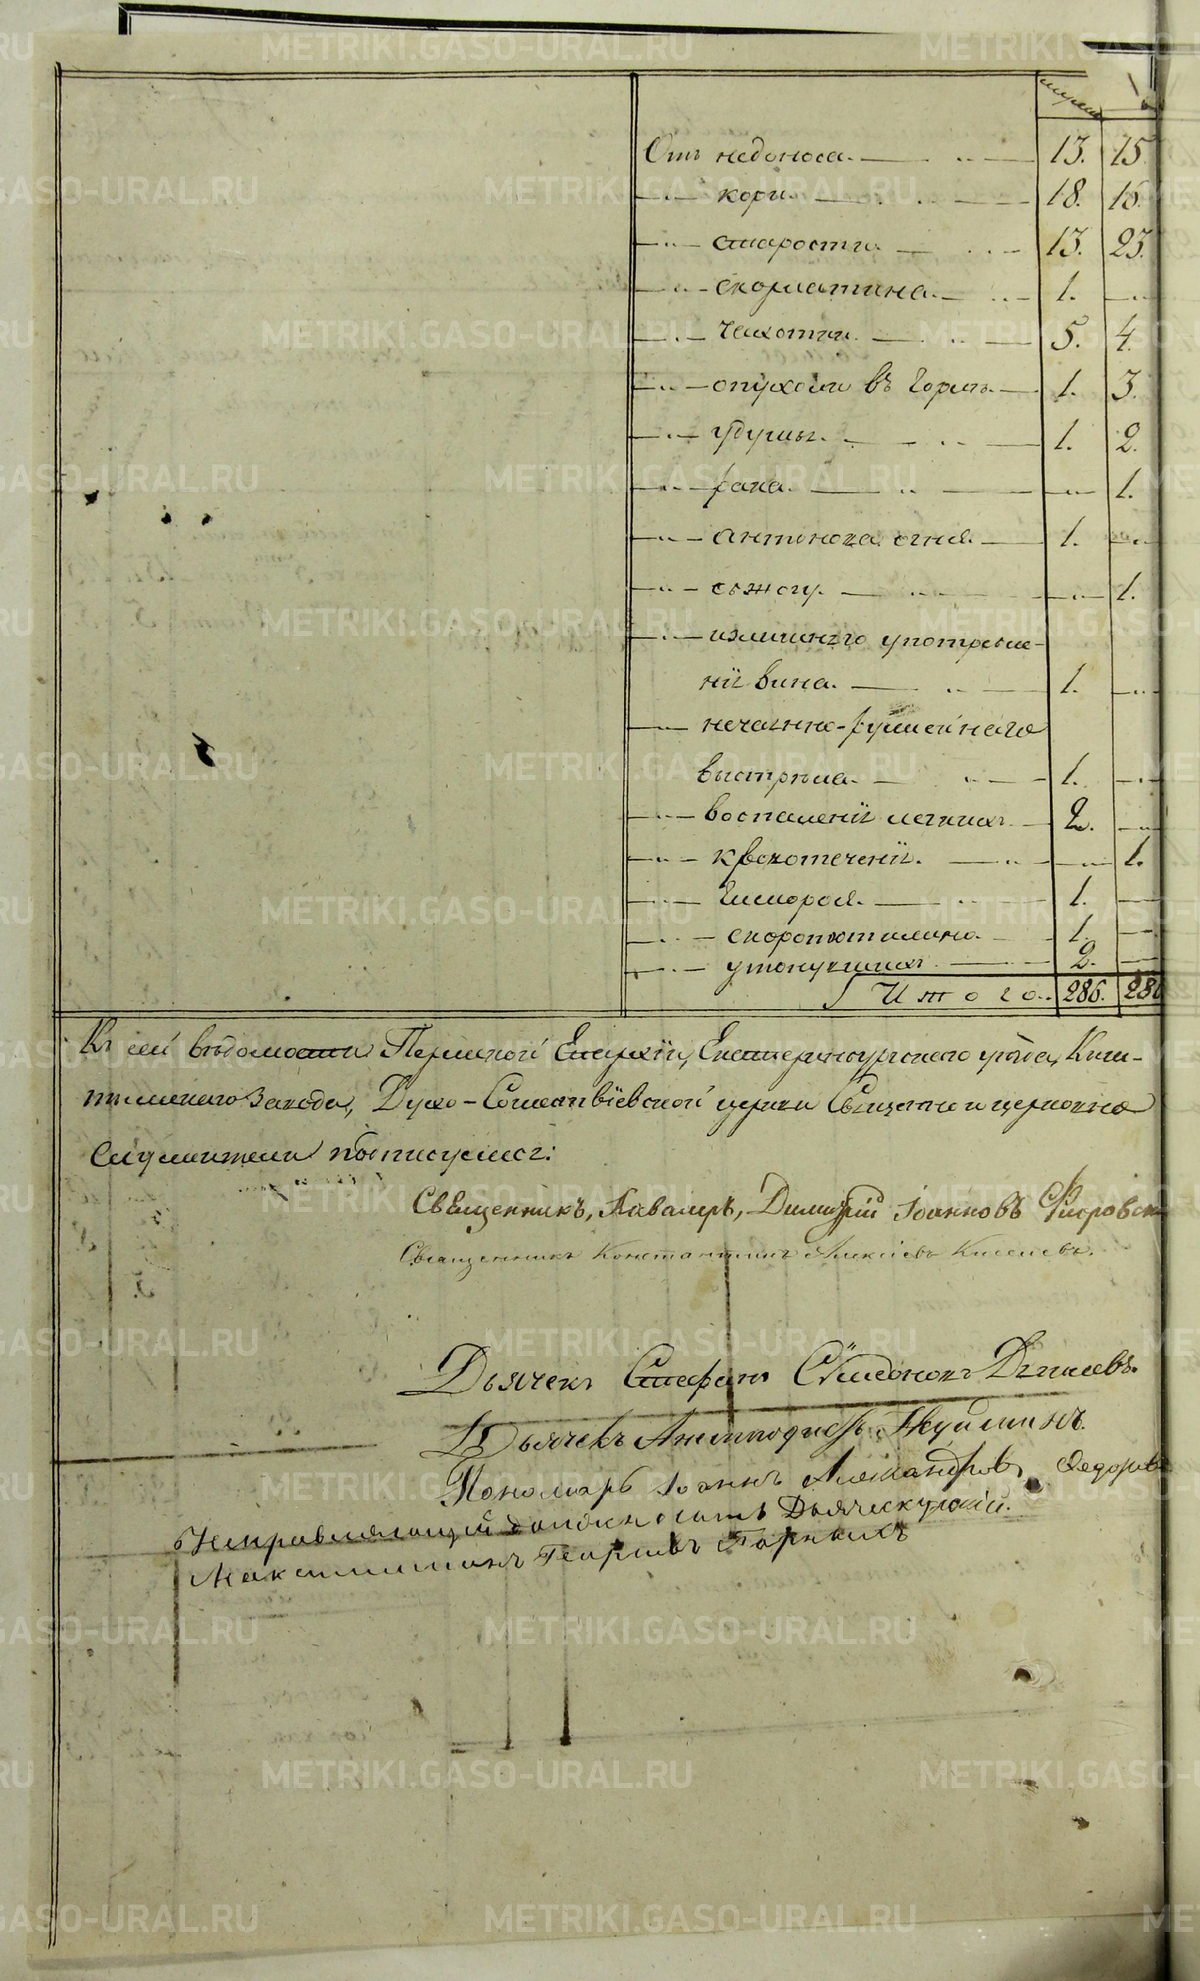 Отъ недоноса. 13. 15.
кори. 18. 15.
старости. 13. 23.
скорлатина. 1.
чахотки. 5. 4.
опухоли въ горлѣ. 1. 3.
удушья. 1. 2.
рака. 1.
антонова огня. 1.
съжогу. 1.
излишнего употребле-
нїи вина. 1.
нечаянно-ружейнаго
выстрѣла. 1.
воспаленїи легкихъ 2.
кровотеченїи. 1.
геморроя. 1.
скоропостижно. 1.
утонувшихъ 2.
Итого. 286. 286
Къ сей вѣдомости Пермской Епархїи, Екатеринбургскаго уѣзда, Киш-
тымскаго Завода, Духо-Сошествїевской церкви Священно и церковно
служители подписуемся:
Священникъ, Кавалеръ, Димитрій Іоанновъ Фи
Священникъ Константинъ Алексіевъ Киселевъ.
Дьячекъ Стефанъ Сѷмеоновъ Дягилевъ.
Дьячекъ Анемподистъ
Пономарь Іоаннъ Александровъ Федоров
Исправляющій должность Дьяческую
Максимиліанъ Георгіевъ Горныхъ
METRIKI.GASO-URAL.RU